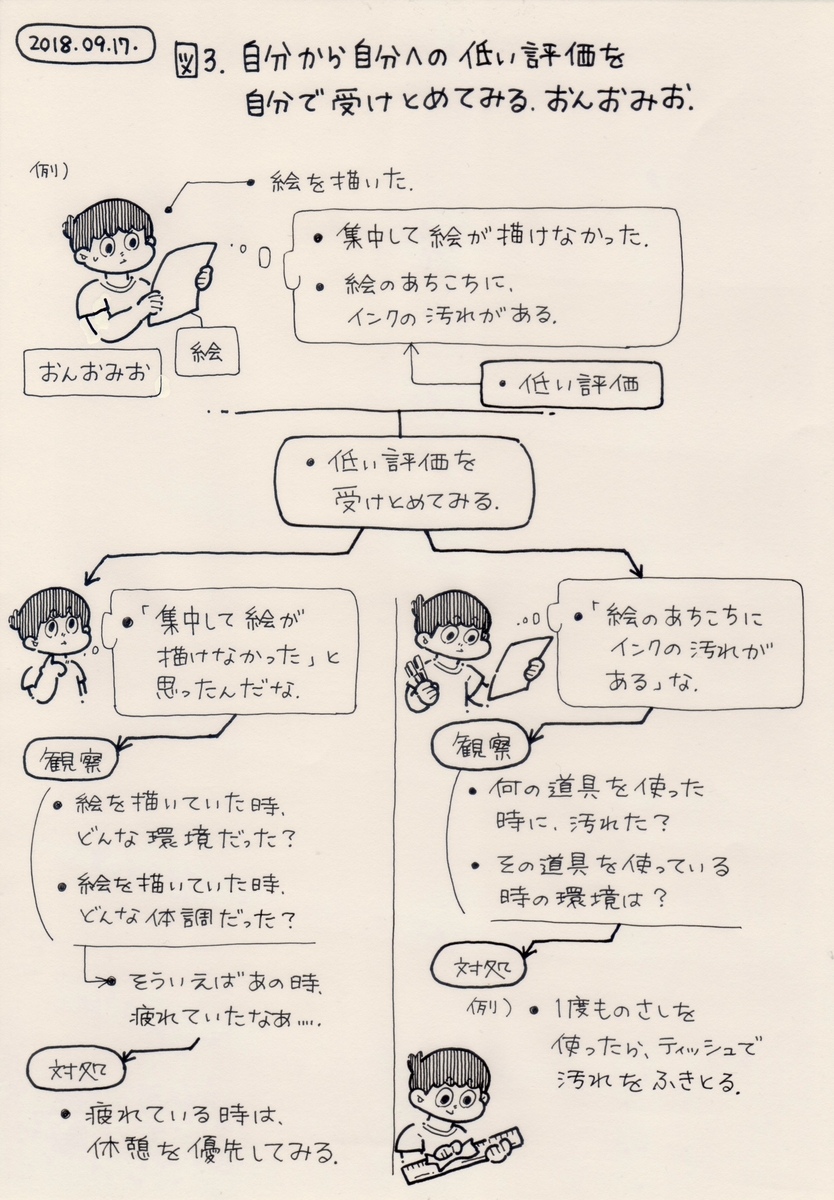 2018.09.17.
図3. 自分から自分への低い評価を
自分で受けとめてみる. おんおみお.
例)
絵を描いた.
• 集中して絵が描けなかった.
• 絵のあちこちに、
インクの汚れがある.
絵
おんおみお
• 低い評価
• 低い評価を
受けとめてみる.
•「集中して絵が
描けなかった」と
思ったんだな.
観察
• 絵を描いていた時、
どんな環境だった?
• 絵を描いていた時、
どんな体調だった?
そういえばあの時、
疲れていたなぁ....
対処
• 疲れている時は、
休憩を優先してみる.
•「絵のあちこちに
インクの汚れが
ある」な.
観察
• 何の道具を使った
時に、汚れた?
• その道具を使っている
時の環境は?
対処
例) • 1度ものさしを
使ったら、ティッシュで
汚れをふきとる.